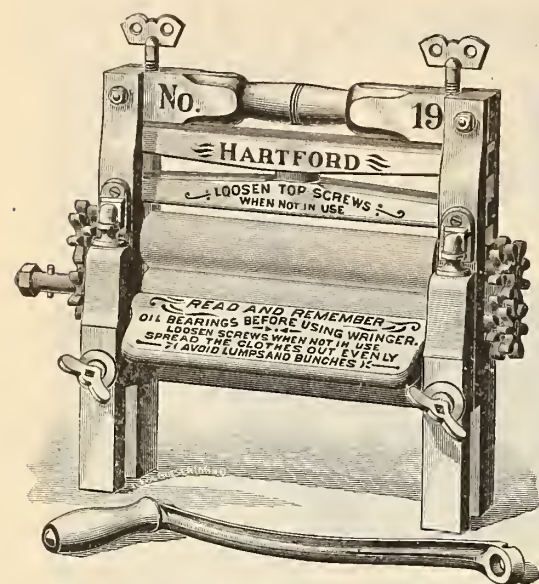 No. 19
HARTFORD
LOOSEN TOP SCREWS
WHEN NOT IN USE
READ AND REMEMBER
OIL BEARINGS BEFORE USING WRINGER.
LOOSEN SCREWS WHEN NOT IN USE
SPREAD THE CLOTHES OUT EVENLY
AVOID LUMPS AND BUNCHES